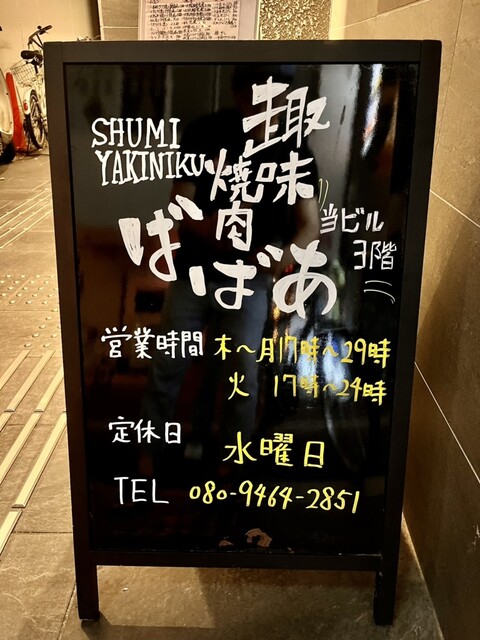 SHUMI
YAKINIKU
趣味
焼肉
ばばあ
当ビル
3階
営業時間 木～月17時～29時
火 17時～24時
定休日 水曜日
TEL 080-9464-2851